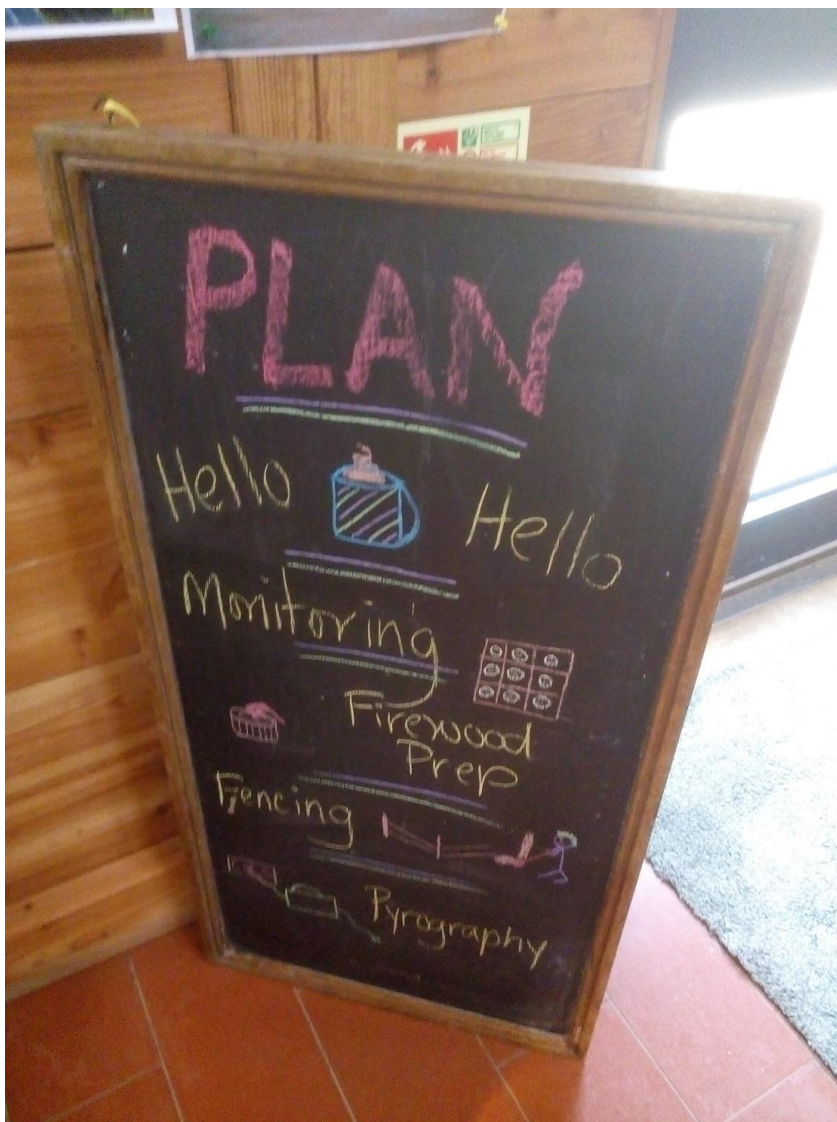 PLAN
Hello Hello
Monitoring
Firewood
Prep
Fencing
Pyrography